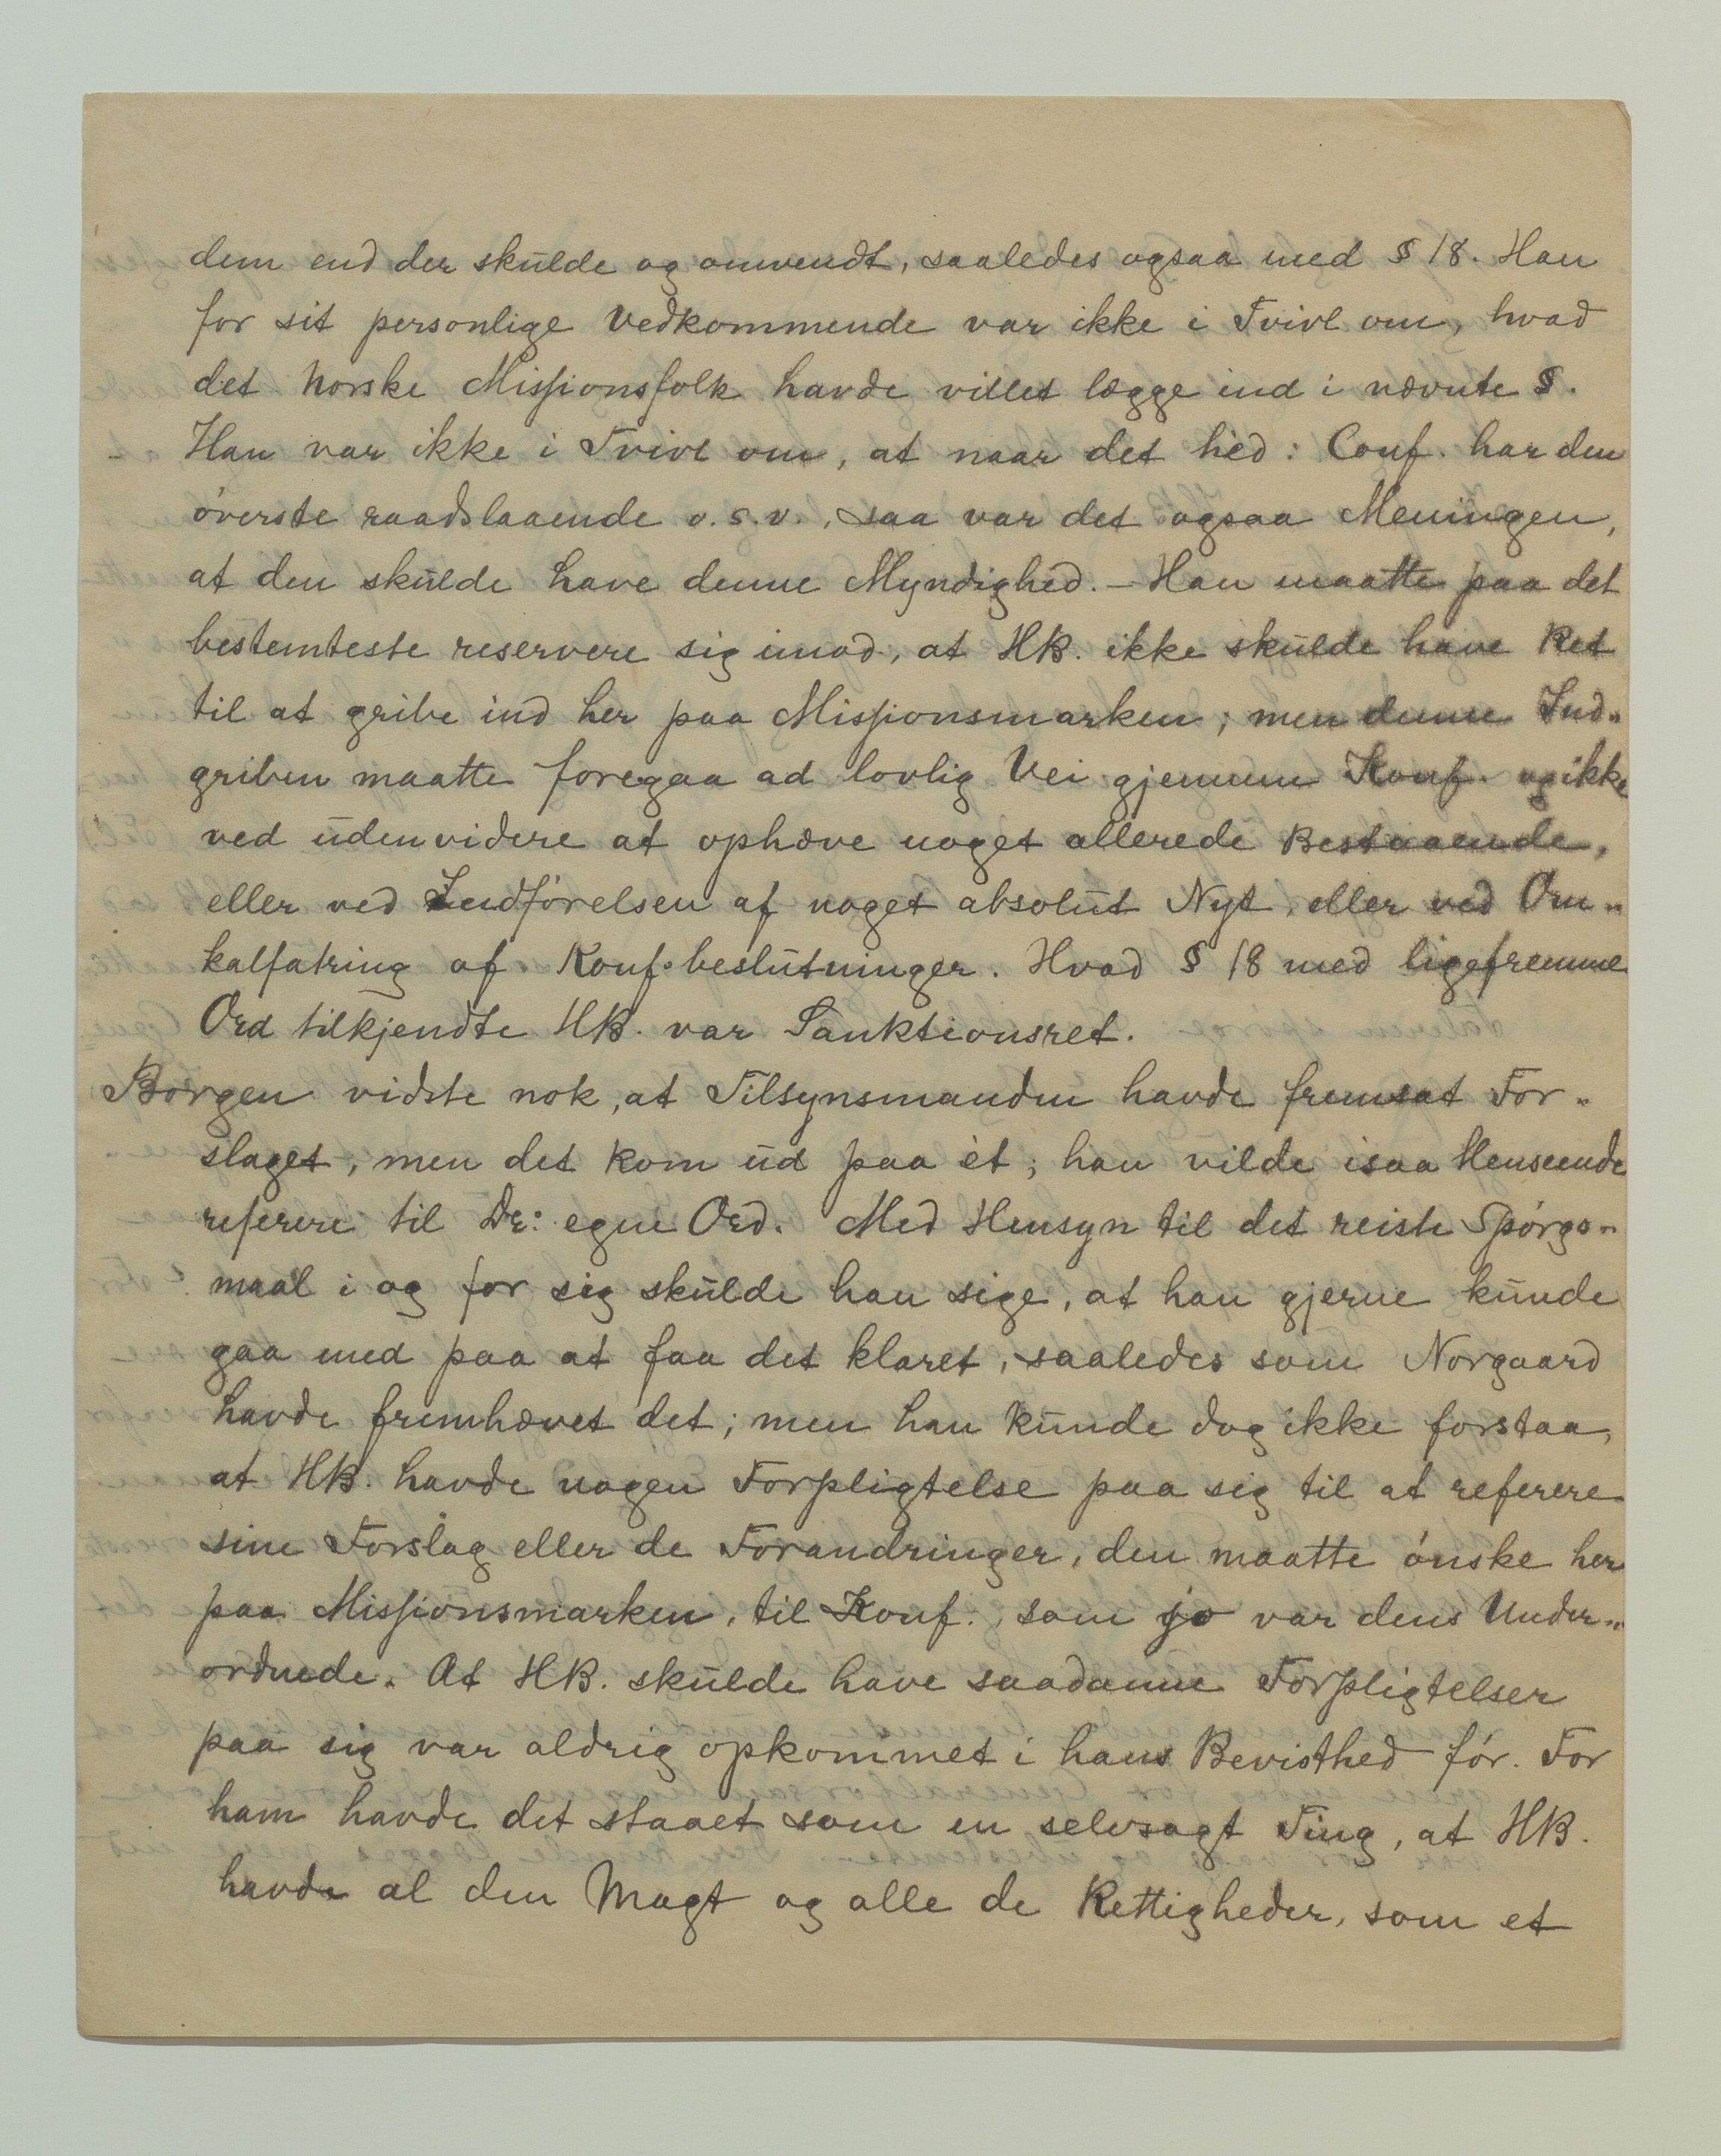 dem end der skulde og omvendt, saaledes ogsaa med § 18. Han
for sit personlige Vedkommende var ikke i Tvivl om, hvad
det Norske Missionsfolk havde villet lægge ind i nævnte §.
Han var ikke i Tvivl om, at naar det hed: Conf. har den
øverste raadslaaende o.s.v., saa var det ogsaa Meningen,
at den skulde have denne Myndighed. – Han maatte paa det
bestemteste reservere sig imod, at HB. ikke skulde have Ret
til at gribe ind her paa Missionsmarken; men denne Ind-
griben maatte foregaa ad lovlig Vei gjennem Konf. og ikke
ved uden videre at ophæve noget allerede Bestaaende,
eller ved Indførelsen af noget absolut Nyt, eller ved Om-
kalfatring af Konf.beslutninger. Hvad § 18 med ligefremme
Ord tilkjendte HB. var Sanktionsret.
Borgen vidste nok, at Tilsynsmanden havde fremsat For-
slaget, men det kom ud paa èt; han vilde isaa Henseende
referere til Dr: egne Ord. Med Hensyn til det reiste Spørgs-
maal i og for sig skulde han sige, at han gjerne kunde
gaa med paa at faa det klaret, saaledes som Norgaard
havde fremhævet det; men han kunde dog ikke forstaa,
at HB. havde nogen Forpligtelse paa sig til at referere
sine Forslag eller de Forandringer, den maatte ønske her
paa Missionsmarken, til Konf., som jo var dens Under-
ordnede. At HB. skulde have saadanne Forpligtelser
paa sig var aldrig opkommet i hans Bevisthed før. For
ham havde det staaet som en selvsagt Ting, at HB.
havde al den Magt og alle de Rettigheder, som et